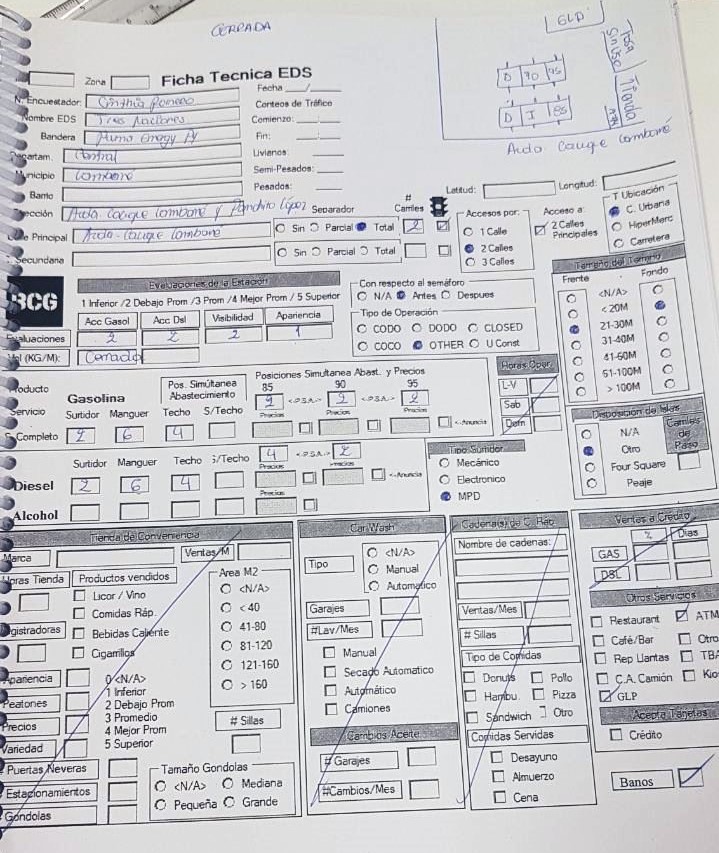 CERRADA
GLP
D 90 95
D I 85
Tienda
Avda Cacique Lambaré
Zona
Ficha Tecnica EDS
Fecha
N. Encuestador: Cinthia Romero
Conteos de Tráfico
Nombre EDS Tres Naciones
Comienzo:
Bandera Puma Energy Py
Fin:
Departam. Central
Livianos:
Municipio Lambaré
Semi-Pesados:
Barrio
Pesados:
Latitud:
Longitud:
Avda Cacique Lambaré y Pancho López
Separador
# Carriles
Principal Avda. Cacique Lambaré
Sin Parcial Total 2
Secundaria
Sin Parcial Total
Accesos por:
1 Calle
2 Calles
3 Calles
Acceso a:
2 Calles Principales
T Ubicación
C. Urbana
HiperMerc
Carretera
BCG
Evaluaciones de la Estación
1 Inferior /2 Debajo Prom /3 Prom /4 Mejor Prom / 5 Superior
Acc Gasol Acc Dsl Visibilidad Apariencia
Evaluaciones 2 2 2 1
Vol (KG/M): Cerrado
Con respecto al semáforo
N/A Antes Despues
Tipo de Operación
CODO DODO CLOSED
COCO OTHER U Const
Tamaño del Terreno
Frente Fondo
<N/A>
< 20M
21-30M
31-40M
41-60M
61-100M
> 100M
Producto
Gasolina
Pos. Simúltanea Abastecimiento
Posiciones Simultanea Abast. y Precios
85 90 95
2 <-P.S.A.-> 2 <-P.S.A.-> 2
Servicio Surtidor Manguer Techo S/Techo
Precios Precios Precios
S. Completo 2 6 4
<-Anuncia
Horas Oper.
L-V
Sab
Dom
Surtidor Manguer Techo S/Techo
4 <-P.S.A.-> 2
Precios Precios
Diesel 2 6 4
<-Anuncia
Precios
Alcohol
Tipo Surtidor
Mecánico
Electronico
MPD
Disposición de Islas
N/A
Otro
Four Square
Peaje
Carriles de Paso
Tienda de Conveniencia
Marca Ventas/M
Horas Tienda Productos vendidos
Licor / Vino
Comidas Ráp.
Registradoras
Bebidas Caliente
Cigarrillos
Area M2
<N/A>
< 40
41-80
81-120
121-160
> 160
Apariencia
Peatones
Precios
Variedad
0 <N/A>
1 Inferior
2 Debajo Prom
3 Promedio
4 Mejor Prom
5 Superior
# Sillas
Puertas Neveras
Estacionamientos
Gondolas
Tamaño Gondolas
<N/A> Mediana
Pequeña Grande
Car Wash
Tipo
<N/A>
Manual
Automatico
Garajes
#Lav/Mes
Manual
Secado Automatico
Automático
Camiones
Cambios Aceite
# Garajes
#Cambios/Mes
Cadena(s) de C. Ráp.
Nombre de cadenas:
Ventas/Mes
# Sillas
Tipo de Comidas
Donuts Pollo
Hambu. Pizza
Sándwich Otro
Comidas Servidas
Desayuno
Almuerzo
Cena
Ventas a Crédito
% Dias
GAS
DSL
Otros Servicios
Restaurant ATM
Café/Bar Otro
Rep Llantas TBA
C.A. Camión Kio
GLP
Acepta Tarjetas
Crédito
Banos